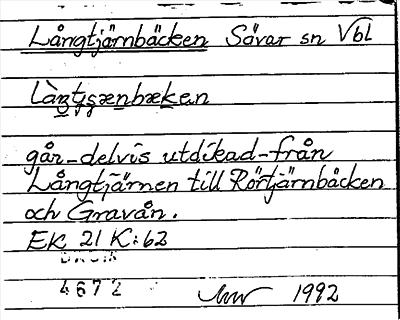 Långtjärnbäcken Sävar sn Vbl
går-delvis utdikad-från
Långtjärnen till Rörtjärnbäcken
och Gravån.
EK 21 K:62
4672 1992